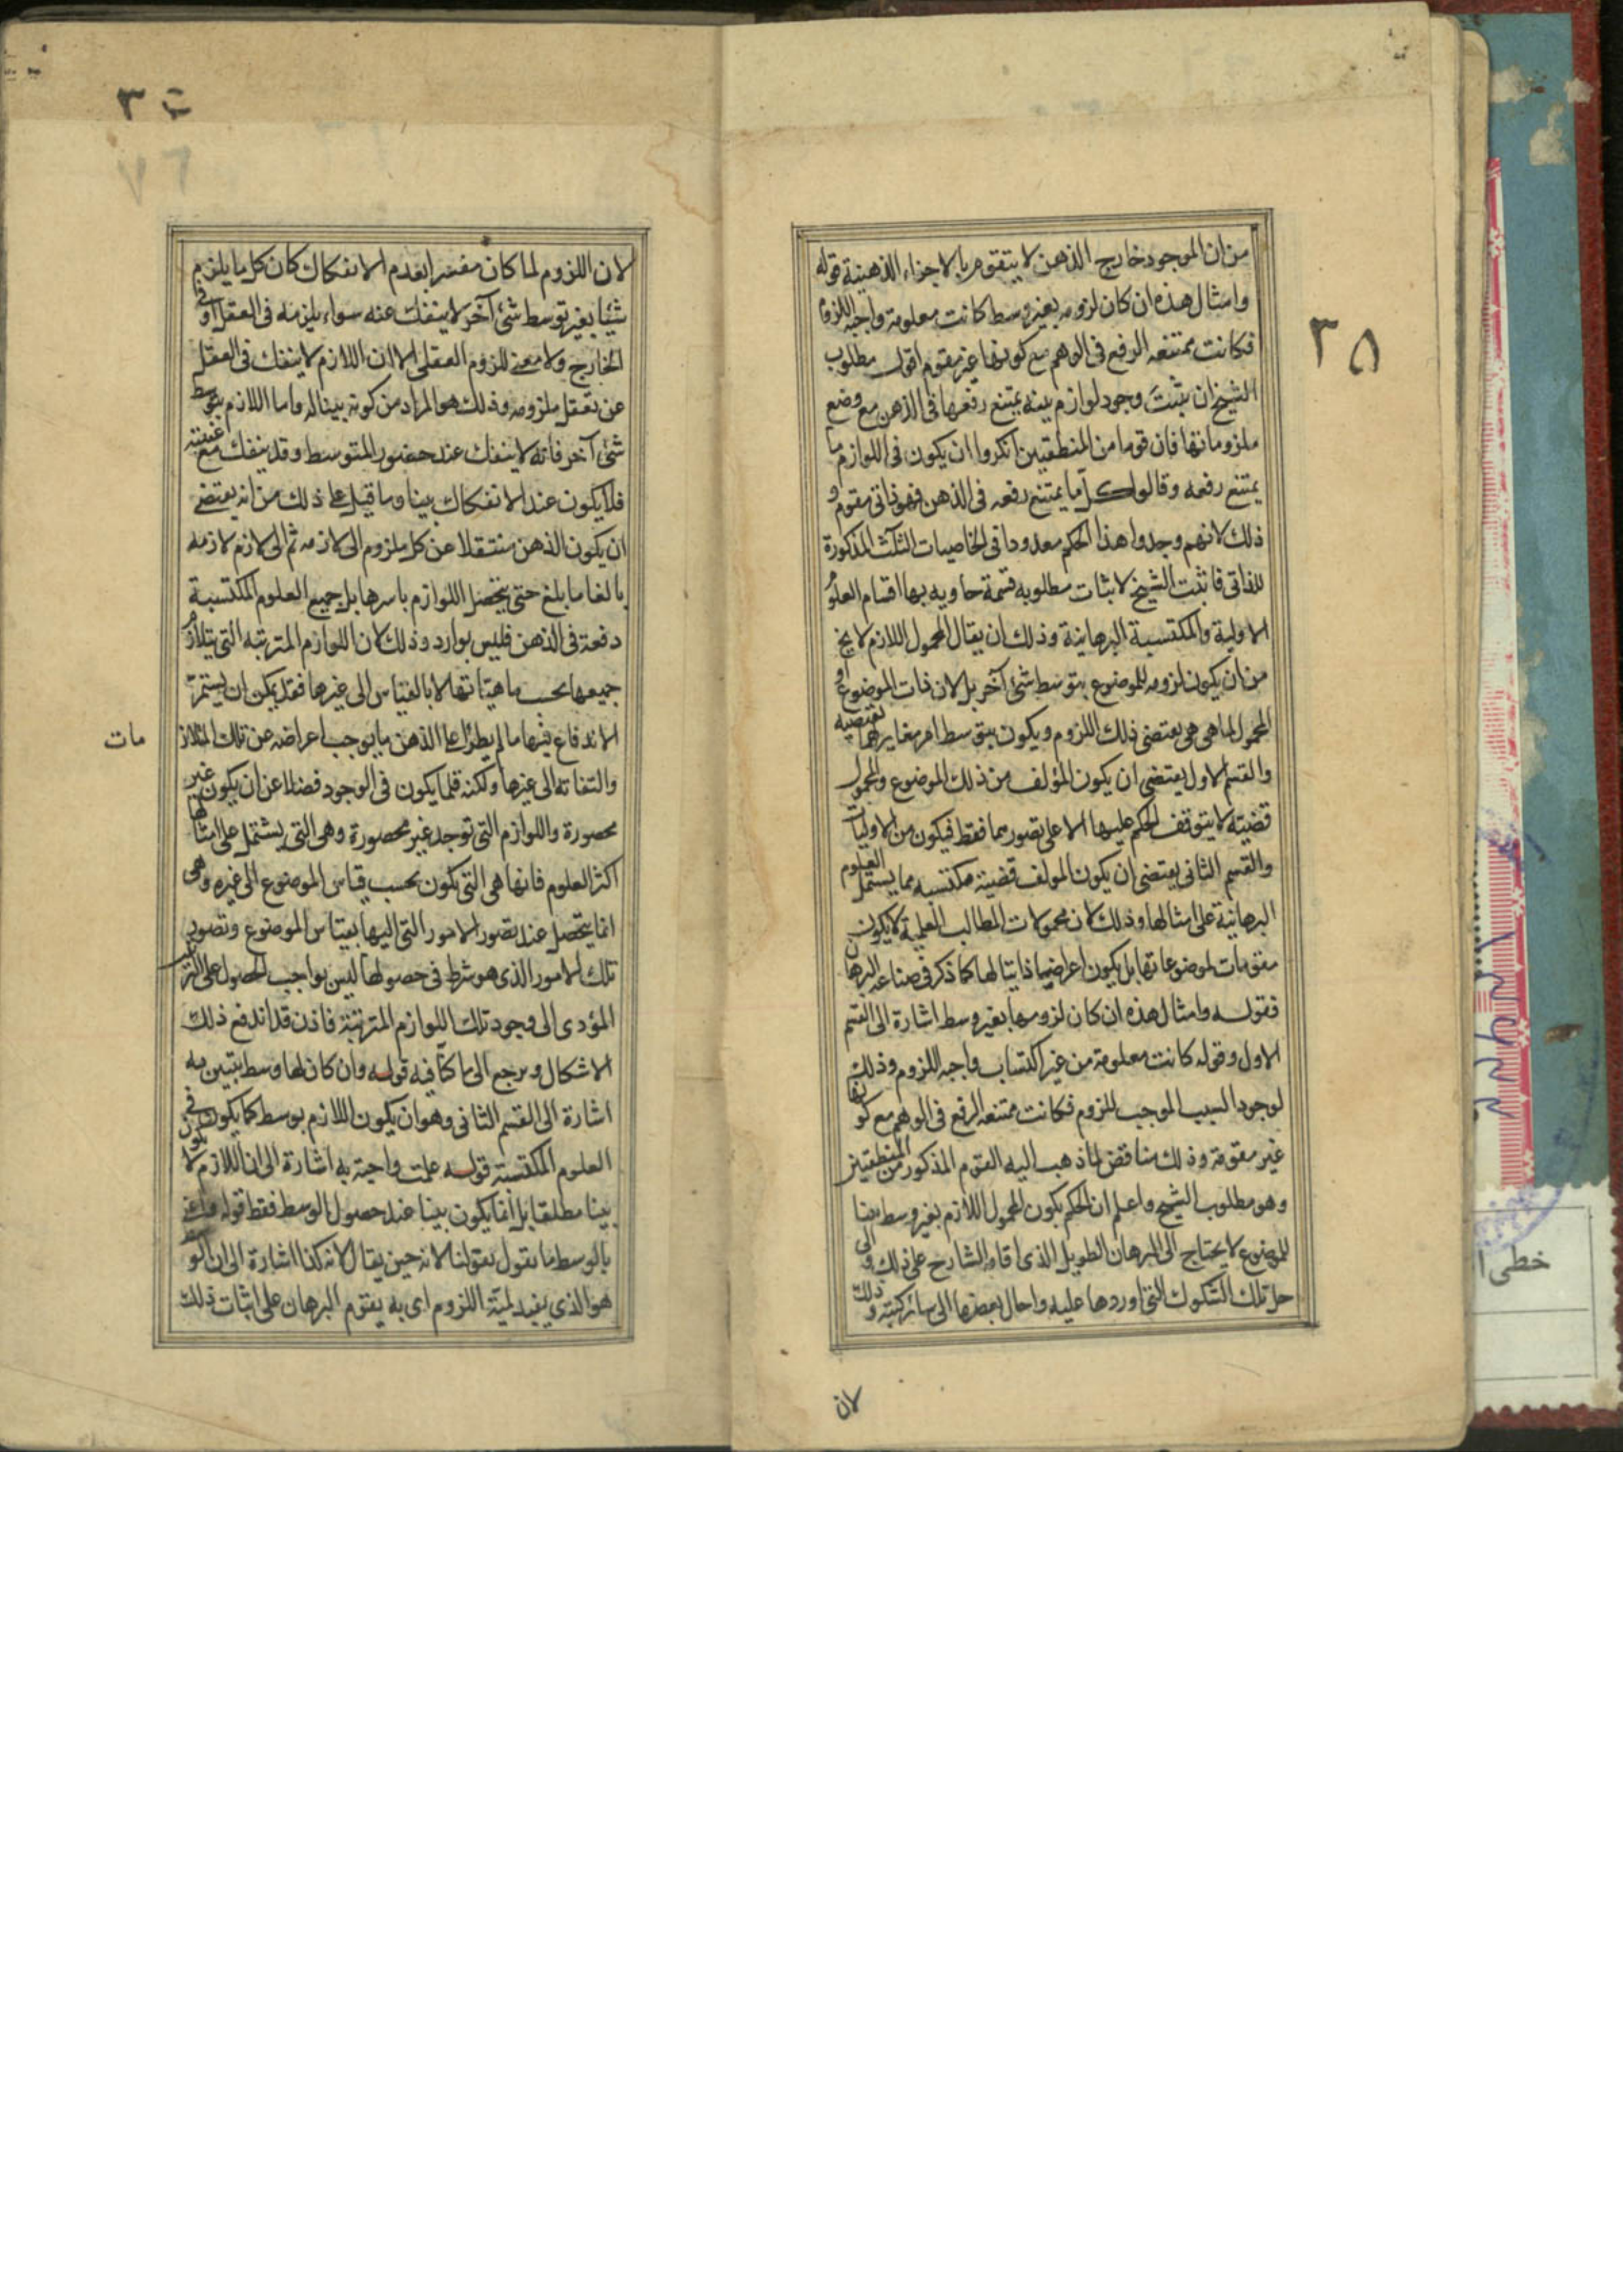 ٣٥
من ان الموجود خارج الذهن لا يتقوم بالاجزاء الذهنية قوله
وامثال هذه ان كان لزومه بغير وسط كانت معلومة واجبه اللزوم
فكانت ممتنعه الرفع فى الوهم مع كونها غير مقوم اقول مطلوب
الشيخ ان يثبت وجود لوازم بينه يمتنع رفعها فى الذهن مع وضع
ملزوماتها فان قوما من المنطقيين انكروا ان يكون فى اللوازم ما
يمتنع رفعه وقالوا كل ما يمتنع رفعه فى الذهن فهو ذاتى مقوم و
ذلك لانهم وجدوا هذا الحكم معدودا فى الخاصيات الثلث المذكورة
للذاتى فاثبت الشيخ لاثبات مطلوبه قسمة حاويه بها اقسام العلوم
الاولية والمكتسبة البرهانية وذلك ان يقال المحمول اللازم لا يخ
من ان يكون لزومه للموضوع بتوسط شئ آخر بل لان ذات الموضوع او
المحمول لما هى هى يقتضى ذلك اللزوم ويكون بتوسط امر مغاير لهما يقتضيه
والقسم الاول يقتضى ان يكون المؤلف من ذلك الموضوع والمحمول
قضيته لا يتوقف الحكم عليها الا على تصورهما فقط فيكون من الاوليات
والقسم الثانى يقتضى ان يكون المولف قضية مكتسبه مما يشتمل العلوم
البرهانية على امثالها وذلك لان محمولات المطالب العلمية لا يكون
مقومات لموضوعاتها بل يكون اعراضا ذاتيا لها كما ذكر فى صناعه البرهان
فقوله وامثال هذه ان كان لزومها بغير وسط اشارة الى القسم
الاول وقوله كانت معلومة من غير اكتساب واجبه اللزوم وذلك
لوجود السبب الموجب للزوم فكانت ممتنعه الرفع فى الوهم مع كونها
غير مقومة وذلك مناقض لما ذهب اليه القوم المذكور من المنطقيين
وهو مطلوب الشيخ واعلم ان الحكم بكون المحمول اللازم بغير وسط بينا
للموضوع لا يحتاج الى البرهان الطويل الذى اقامه الشارح على ذلك والى
حل تلك الشكوك التى اوردها عليه واحال بعضها الى سائر كتبه وذلك
لان
لان اللزوم لما كان مفسرا بعدم الانفكاك كان كل ما يلزم
شيئا بغير توسط شئ آخر لا ينفك عنه سواء يلزمه فى العقل او فى
الخارج ولا معنى للزوم العقلى الا ان اللازم لا ينفك فى العقل
عن تعقل ملزومه وذلك هو المراد من كونه بينا له واما اللازم بتوسط
شئ آخر فانه لا ينفك عند حضور المتوسط وقد ينفك مع غيبته
فلا يكون عند الانفكاك بينا وما قيل على ذلك من انه يقتضى
ان يكون الذهن منتقلا عن كل ملزوم الى لازمه ثم الى لازم لازمه
بالغا ما بلغ حتى يتحصل اللوازم باسرها بل جميع العلوم المكتسبة
دفعة فى الذهن فليس بوارد وذلك لان اللوازم المترتبه التى يتلازم
جميعها بحسب ماهياتها لا بالقياس الى غيرها فقد يمكن ان يستمر
الاندفاع فيها ما لم يطرأ على الذهن ما يوجب اعراضه عن تلك المتلاز
مات
والتفاته الى غيرها ولكنه قلما يكون فى الوجود فضلا عن ان يكون غير
محصورة واللوازم التى توجد غير محصورة وهى التى يشتمل على امثالها
اكثر العلوم فانها هى التى تكون بحسب قياس الموضوع الى غيره وهى
انما يتحصل عند تصور الامور التى اليها بقياس الموضوع وتصور
تلك الامور الذى هو شرط فى حصولها ليس بواجب الحصول على الترتيب
المؤدى الى وجود تلك اللوازم المترتبة فاذن قد اندفع ذلك
الاشكال ويرجع الى ما كنا فيه قوله وان كان لها وسط يتبين به
اشارة الى القسم الثانى وهو ان يكون اللازم بوسط كما يكون فى
العلوم المكتسبة قوله علمت واجبة به اشارة الى ان اللازم لا يكون
بينا مطلقا بل انما يكون بينا عند حصول الوسط فقط قوله واعنى
بالوسط ما يقول بقولنا لانه حين يقال لانه كذا اشارة الى ان الوسط
هو الذى يفيد لمية اللزوم اى به يقوم البرهان على اثبات ذلك
خطى